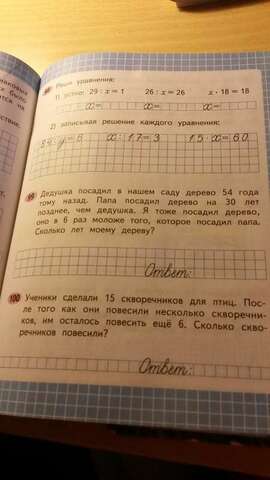 98 Реши уравнения:
1) устно: 29 : x = 1 26 : x = 26 x · 18 = 18
x= x= x=
2) записывая решение каждого уравнения:
84 : y = 6 x : 17 = 3 15 · x = 60
99 Дедушка посадил в нашем саду дерево 54 года
тому назад. Папа посадил дерево на 30 лет
позднее, чем дедушка. Я тоже посадил дерево,
оно в 6 раз моложе того, которое посадил папа.
Сколько лет моему дереву?
Ответ:
100 Ученики сделали 15 скворечников для птиц. Пос-
ле того как они повесили несколько скворечни-
ков, им осталось повесить ещё 6. Сколько скво-
речников повесили?
Ответ: